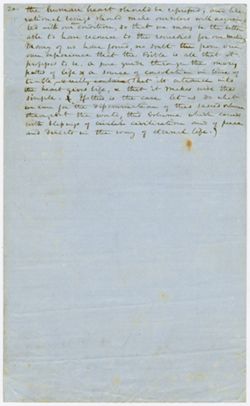 the human heart should be refuted, and like
rational beings should make ourselves well acquain
ted with our condition, so that we may be the better
able to have recourse to the remedies for our malady
Many of us have found no doubt thro from our
own experience that the Bible is all that it
proposes to be. A pure guide through the thorny
paths of life & a source of consolation in times of
trouble that its entrance into
the heart gives life, & that it makes wise the
simple. If this is the case let us do what
we can for the dissemination of this sacred volume
throughout the world, this volume which comes
with blessings of civilization and of peace
and directs in the way of eternal life.